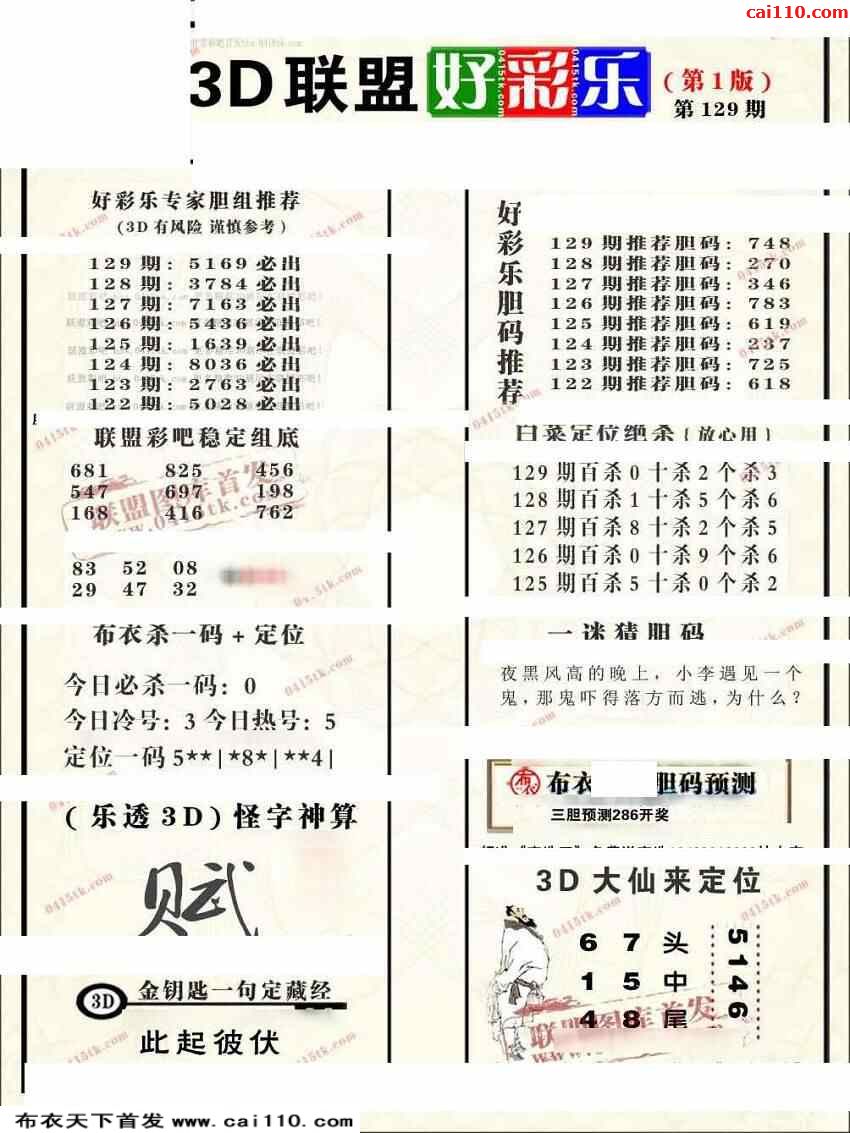 cai110.com
3D联盟好彩乐
(第1版)
第129期
好彩乐专家胆组推荐
(3D有风险 谨慎参考)
129期: 5169必出
128期: 3784必出
127期: 7163必出
126期: 5436必出
125期: 1639必出
124期: 8036必出
123期: 2763必出
122期: 5028必出
联盟彩吧稳定组底
681 825 456
547 697 198
168 416 762
83 52 08
29 47 32
布衣杀一码+定位
今日必杀一码: 0
今日冷号: 3 今日热号: 5
定位一码5**|*8*|**4|
(乐透3D)怪字神算
赋
3D 金钥匙一句定藏经
此起彼伏
好彩乐胆码推荐
129期推荐胆码: 748
128期推荐胆码: 270
127期推荐胆码: 346
126期推荐胆码: 783
125期推荐胆码: 619
124期推荐胆码: 237
123期推荐胆码: 725
122期推荐胆码: 618
白菜定位绝杀(放心用)
129期百杀0十杀2个杀3
128期百杀1十杀5个杀6
127期百杀8十杀2个杀5
126期百杀0十杀9个杀6
125期百杀5十杀0个杀2
一迷猜胆码
夜黑风高的晚上，小李遇见一个
鬼，那鬼吓得落方而逃，为什么？
布衣 布衣 胆码预测
三胆预测286开奖
3D大仙来定位
6 7 头
1 5 中
4 8 尾
5146
联盟图库首发
www.0415tk.com
0415tk.com
布衣天下首发 www.cai110.com